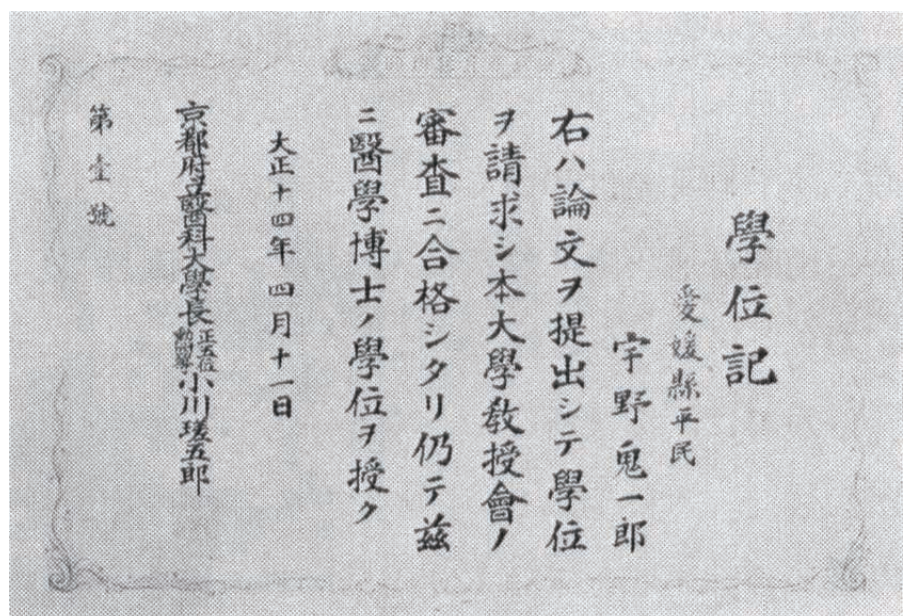 學位記
愛媛縣平民
宇野鬼一郎
右ハ論文ヲ提出シテ學位
ヲ請求シ本大學敎授會ノ
審査ニ合格シタリ仍テ茲
ニ醫學博士ノ學位ヲ授ク
大正十四年四月十一日
京都府立醫科大學長正五位勳四等小川瑳五郎
第壹號